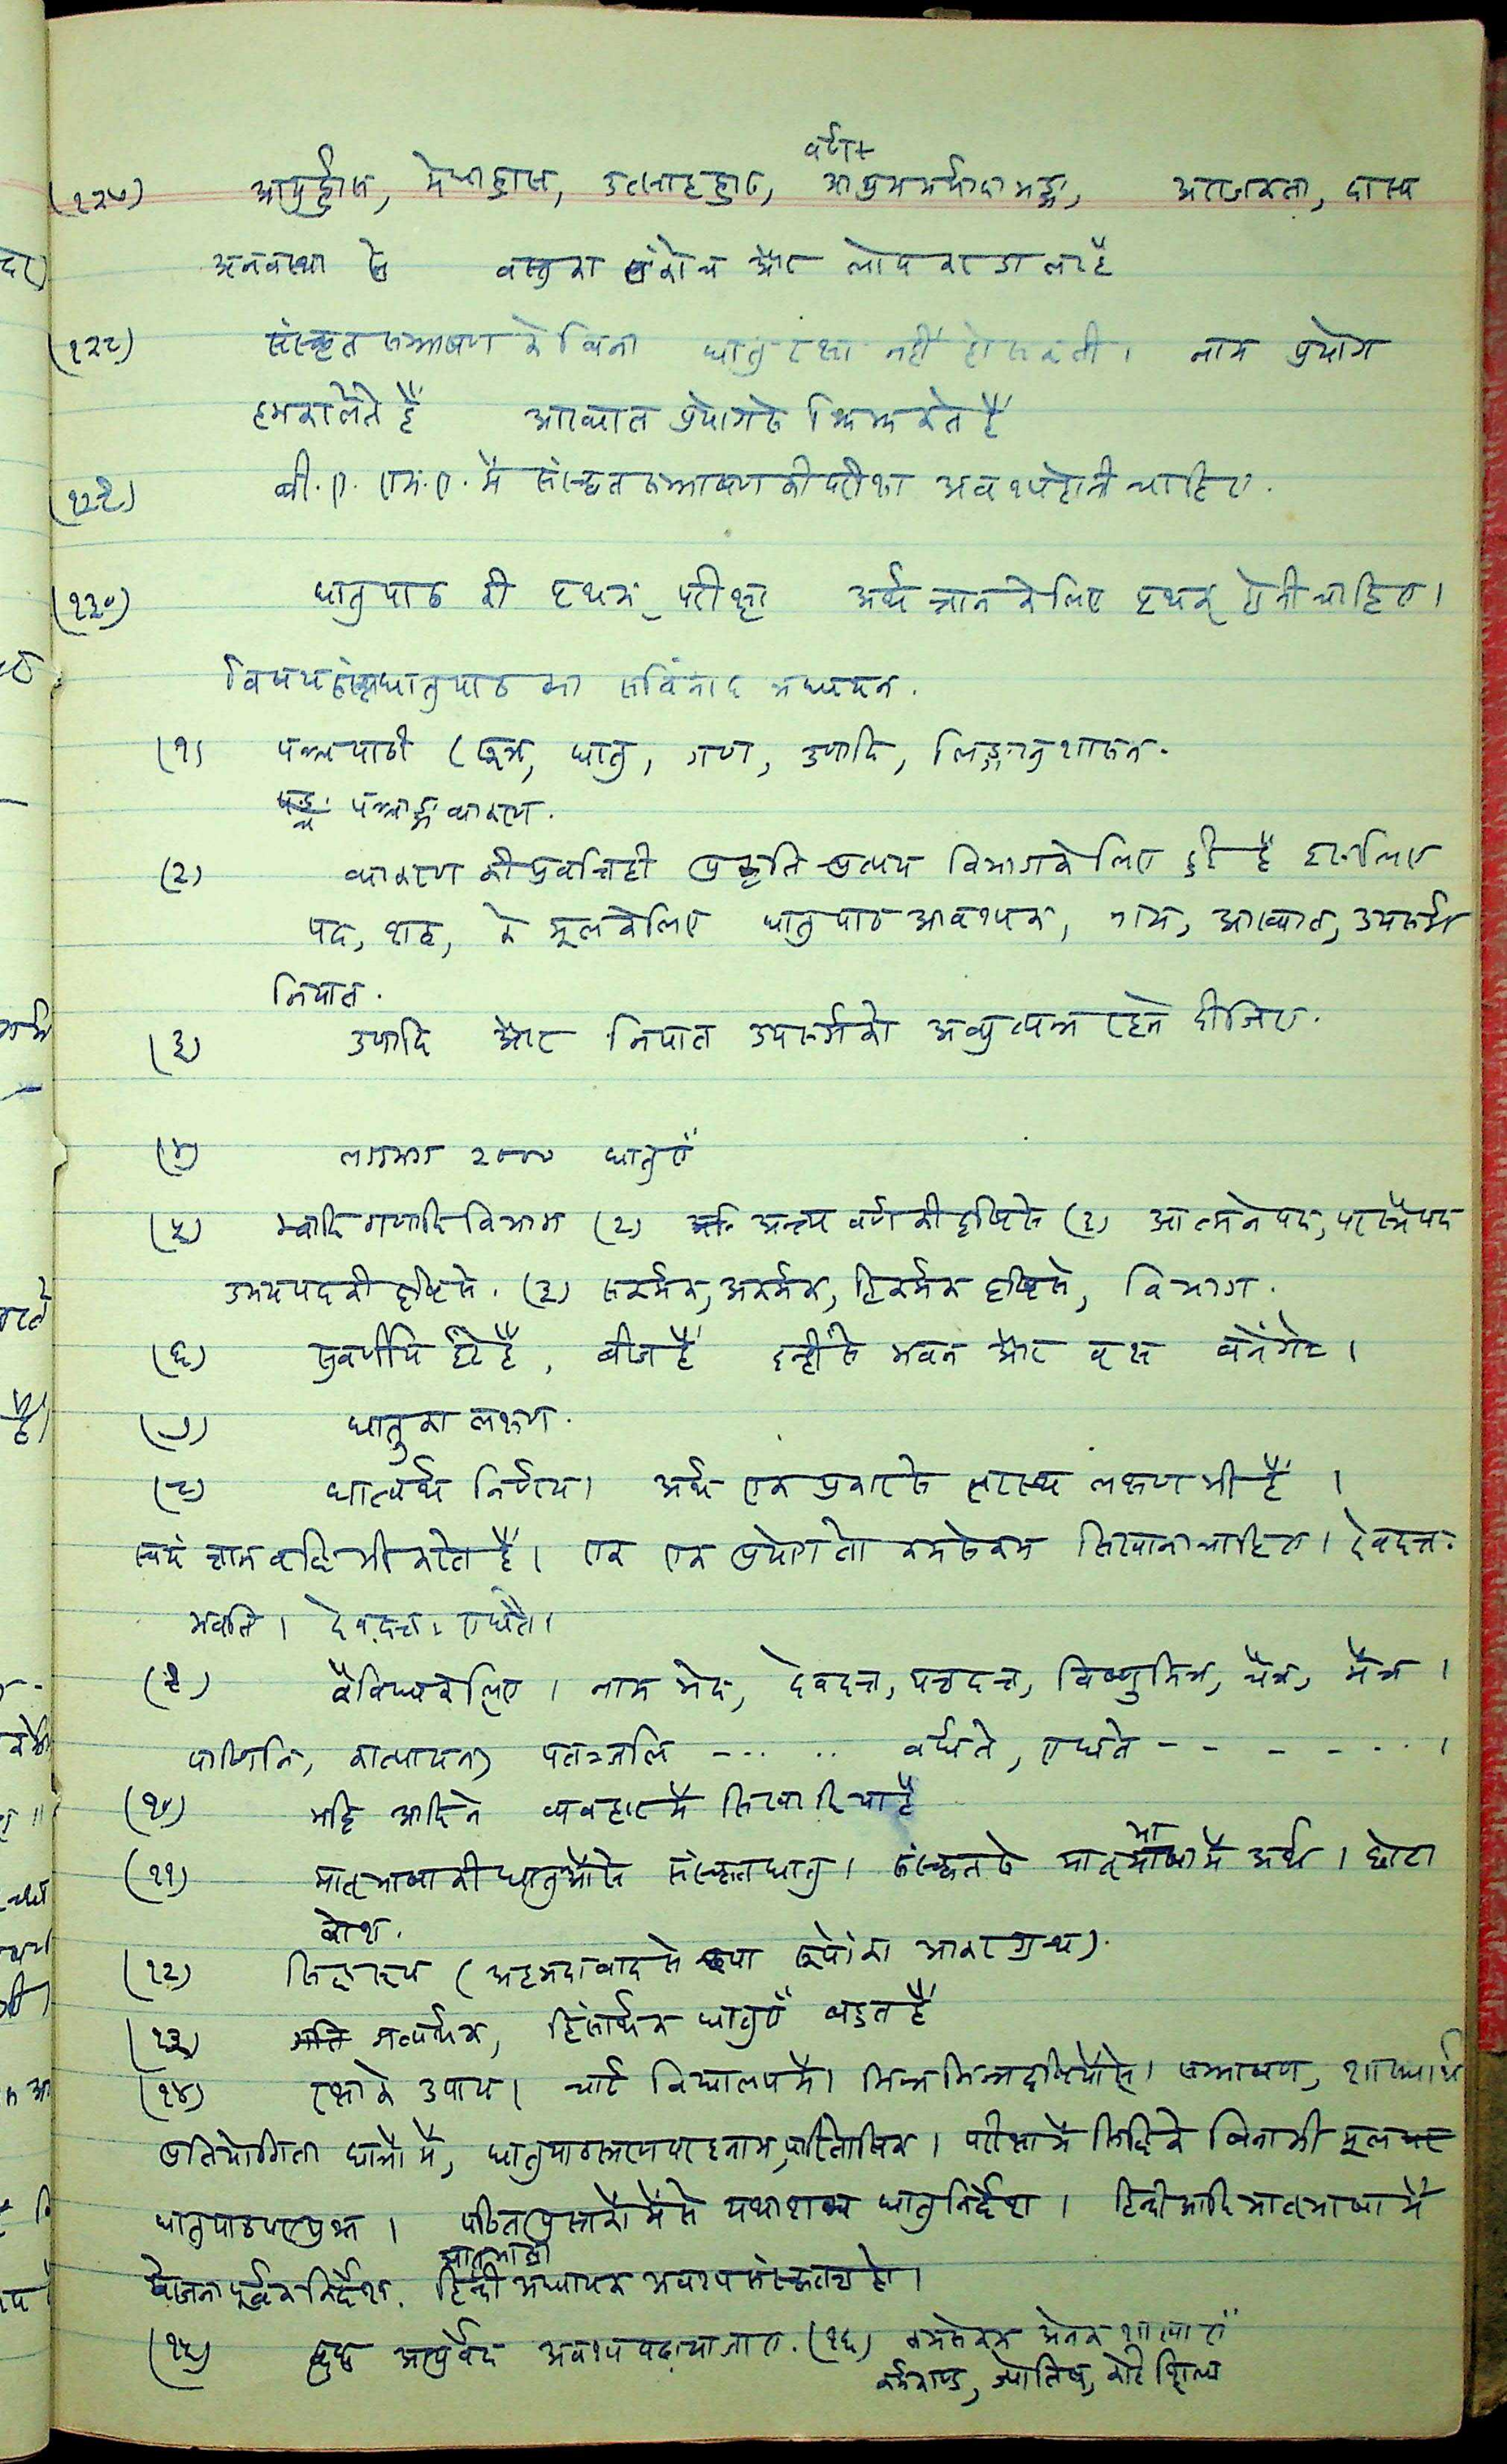 वर्ण
(१२७) आयुर्ह्रास, मेधाह्रास, उत्साहह्रास, आश्रममर्यादाभङ्ग, अराजकता, दास्य
अनवस्था से वस्तुका संकोच और लोप करडालाहै
(१२८) संस्कृतसम्भाषण के बिना धातु रक्षा नहीं होसकती। नाम प्रयोग
हमकरलेते हैं आख्यात प्रयोगसे झिझकते हैं
(१२९) बी.ए. एम.ए. में संस्कृतसम्भाषण की परीक्षा अवश्यहोनी चाहिए.
(१३०) धातुपाठ की पृथक् परीक्षा अर्थ ज्ञान केलिए पृथक् होनी चाहिए।
विषय संस्कृतधातुपाठ का अध्ययन.
(१) पञ्चपाठी (सूत्र, धातु, गण, उणादि, लिङ्गानुशासन.
पञ्चाङ्ग व्याकरण.
(२) व्याकरण की प्रवृत्तिही प्रकृति प्रत्यय विभागकेलिए हुई है इसलिए
पद, शब्द, के मूलकेलिए धातुपाठ आवश्यक, नाम, आख्यात, उपसर्ग
निपात.
(३) उणादि और निपात उपसर्गको अव्युत्पन्न रहने दीजिए.
(४) लगभग २००० धातुएँ
(५) भ्वादि गणादि विभाग (२) अन्त्य वर्ण की दृष्टिसे (२) आत्मनेपद, परस्मैपद
उभयपदकी दृष्टिसे. (३) सकर्मक, अकर्मक, द्विकर्मक दृष्टिसे, विभाग.
(६) ईंटें हैं, बीज हैं इन्हींसे भवन और वृक्ष बनेंगे।
(७) धातुका लक्षण.
(८) धात्वर्थ निर्णय। अर्थ एक प्रकारसे लक्षण भी है।
स्वयं भी करता है। एक एक प्रयोग तो कमसेकम सिखाना चाहिए। देवदत्तः
भवति। देवदत्तः एधते।
(९) वैविध्यकेलिए। नाम भेद, देवदत्त, यज्ञदत्त, विष्णुमित्र, चैत्र, मैत्र।
पाणिनि, कात्यायन, पतञ्जलि -... .. वर्धते, एधते - - - - ...।
(१०) भट्टि आदिने व्यवहारमें सिखादियाहै
(११) मातृभाषा की धातुओंसे संस्कृतधातु। संस्कृतसे मातृभाषामें अर्थ। छोटा
कोश.
(१२) (अहमदाबाद से छपा रूपोंका आकरग्रन्थ).
(१३) गत्यर्थक, हिंसार्थक धातुएँ बहुत हैं
(१४) रक्षाके उपाय। चार्ट विद्यालयमें। भिन्नभिन्नदृष्टियोंसे। सम्भाषण, शास्त्रार्थ
प्रतियोगिता छात्रों में, धातुपाठस्मरणपर इनाम, पारितोषिक। परीक्षामें सिद्धिके बिनाभी मूल
धातुपाठपरप्रश्न। पठितपुस्तकोंमेंसे यथाशक्य धातुनिर्देश। हिन्दीआदि मातृभाषा में
योजना पूर्वक निर्देश. हिन्दी मातृभाषा अध्यापक अवश्य संस्कृतज्ञ हो।
(१५) आयुर्वेद अवश्य पढायाजाए. (१६) कमसेकम अनेक शाखाएँ
कर्मकाण्ड, ज्योतिष, कोई शिल्प